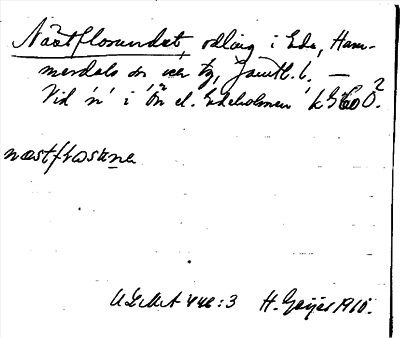 Nästflosundet, odling i Ede, Ham-
merdals sn och tg, Jämtl. l. —
Vid 'n' i 'Ön el. Edeholmen' k G60 Ö.2
næstfłosuna
ULMA 446:3 H. Geijer 1910.